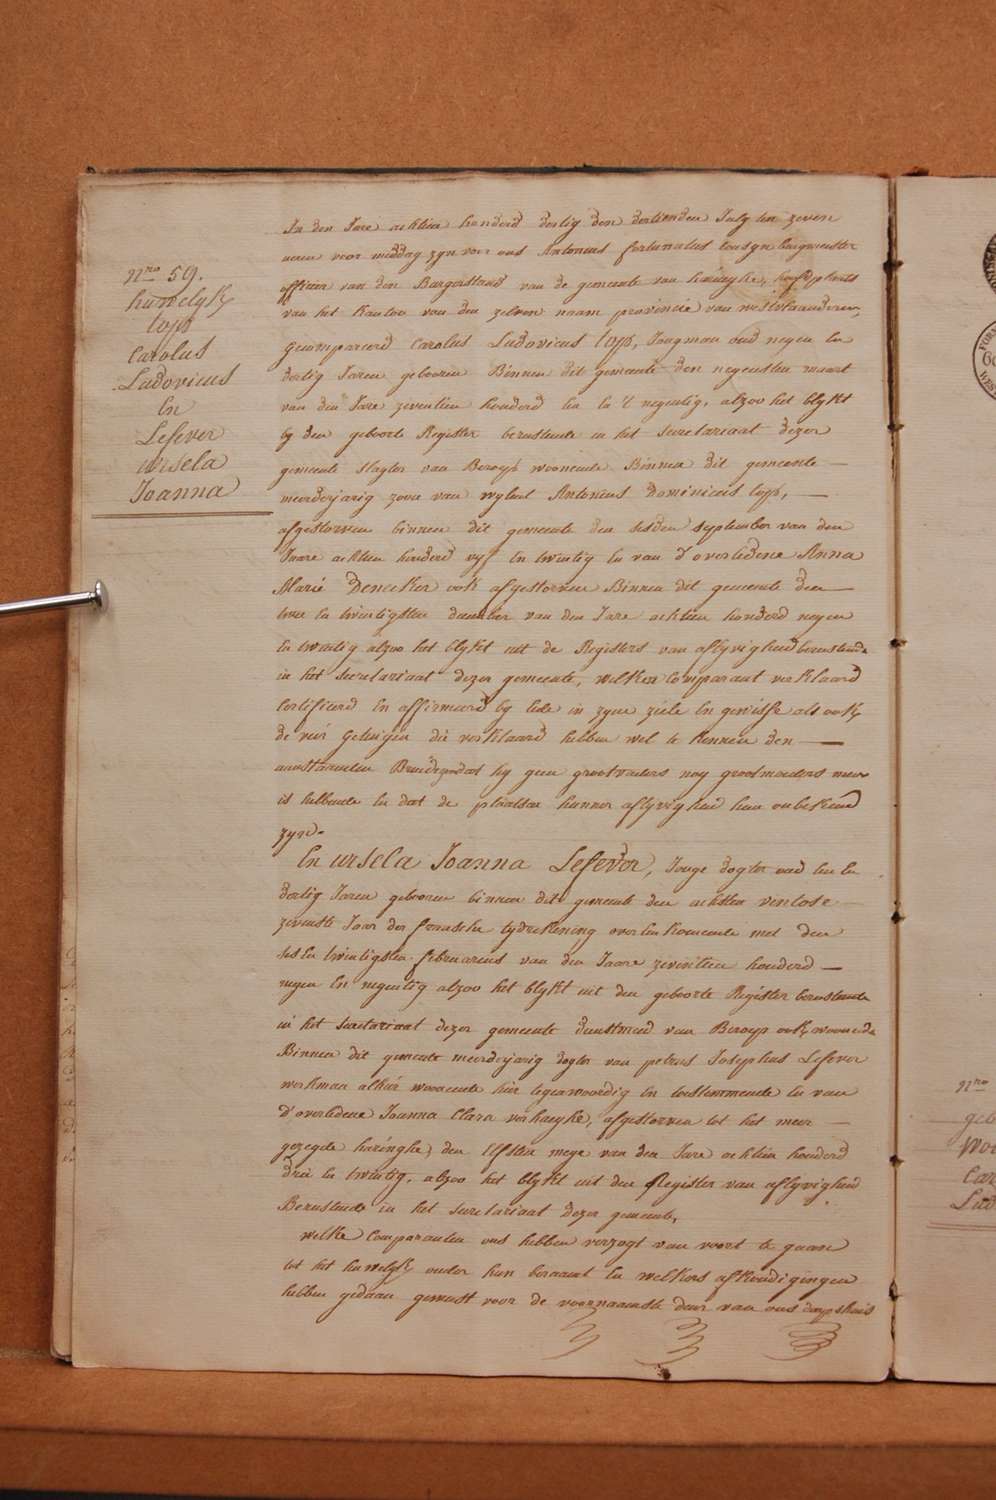 Nro 59.
huwelyk
Cops
Carolus
Ludovicus
En
Lefever
ursela
Joanna
In den Jare achtien honderd dertig den dertienden July ten zeven
uren voor middag zyn voor ons Antonius fortunatus burgmeester
officier van den Burgerstand van de gemeente van haringhe, hoofdplaets
van het Kanton van den zelven naem provincie van westvlaanderen,
gecompareerd Carolus Ludovicus Cops, Jongman oud negen en
dertig Jaren gebooren Binnen dit gemeente den negensten maart
van den Jare zeventien honderd een en 't negentig, alzoo het blykt
by den geboorte Register berustende in het secretariaat dezer
gemeente slagter van Beroep woonende Binnen dit gemeente
meerderjarig zoone van wylent Antonius Dominicus Cops,
afgestorven binnen dit gemeente den sesden september van den
Jaare achtien honderd vyf En twintig En van d'overledene Anna
Marie Denecker ook afgestorven Binnen dit gemeente den
twee en twintigsten december van den Jare achtien honderd negen
En twintig alzoo het blykt uit de Registers van aflyvigheid berustende
in het secretariaat dezer gemeente, welken Comparant verklaard
Certifieerd En affirmeerd by Eede in zyne ziele En gewisse als ook
de vier getuigen die verklaard hebben wel te kennen den
aanstaanden Bruidegom dat hy geen grootvaders nog grootmoeders meer
is hebbende En dat de plaatse hunner aflyvigheid hun onbekend
zyn.
En ursela Joanna Lefever, Jonge dogter oud een En
dertig Jaren gebooren binnen dit gemeente den achtsten ventose
zevenste Jaar der fransche tydrekening over een komende met den
ses En twintigsten februarius van den Jaare zeventien honderd
negen En negentig alzoo het blykt uit den geboorte Register berustende
in het secretariaat dezer gemeente dienstmeid van Beroep ook woonende
Binnen dit gemeente meerderjarig dogter van petrus Josephus Lefever
werkman alhier woonende hier tegenwoordig En toestemmende En van
d'overledene Joanna Clara verhaeghe, afgestorven tot het meer
gezegde haringhe, den Elfsten meye van den Jare achtien honderd
drie en twintig, alzoo het blykt uit den Register van aflyvigheid
Berustende in het secretariaat dezer gemeente,
welke Comparanten ons hebben verzogt van voort te gaan
tot het huwelyk onder hun beraamt En welkers afkondigingen
hebben gedaan geweest voor de voornaamste deur van ons dorpshuis
Nro
geb
Woo
Car
Lud